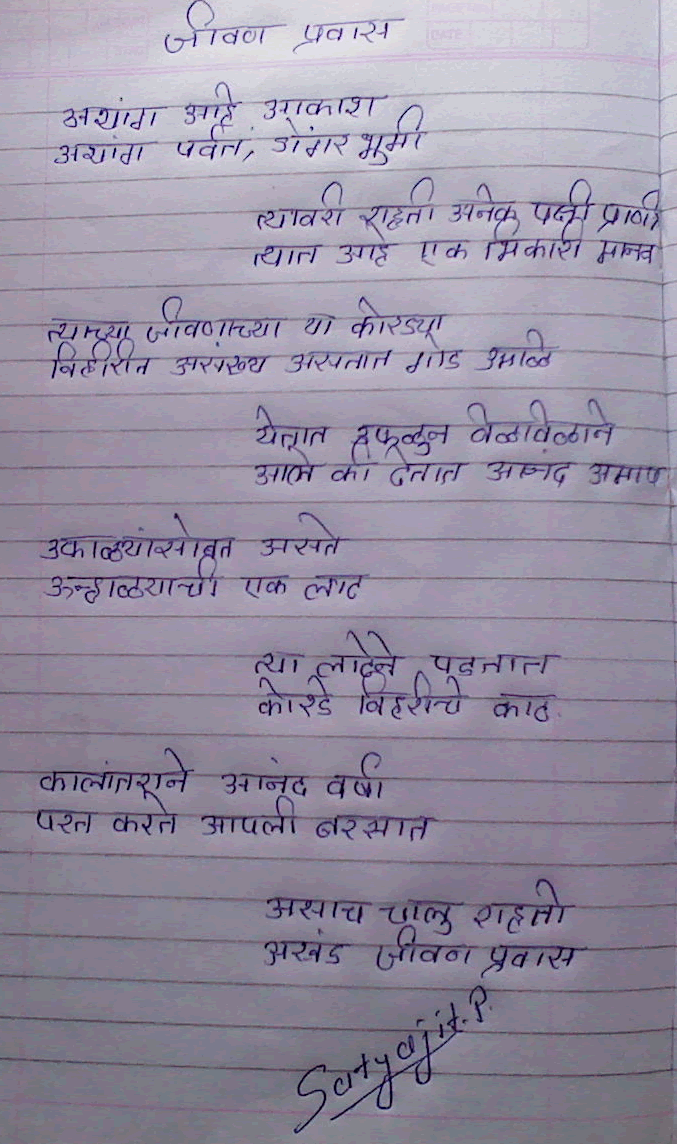 जीवण प्रवास
अथांग आहे आकाश
अथांग पर्वत, डोंगर भुमी
त्यावरी राहती अनेक पक्षी प्राणी
त्यात आहे एक भिकारी मानव
त्याच्या जीवणाच्या या कोरड्या
विहीरीत असंख्य असतात गोड उमाळे
येतात उफळुन वेळावेळाने
आले की देतात आनंद अमाप
उकाळ्यांसोबत असते
ऊन्हाळयाची एक लाट
त्या लाटेने पडतात
कोरडे विहरीचे काठ.
कालांतराने आनंद वर्षा
परत करते आपली बरसात
असाच चालु राहतो
अखंड जीवन प्रवास
Satyajit.P.